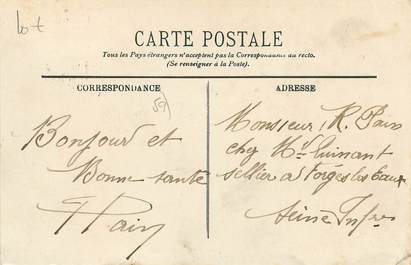 lot
CARTE POSTALE
Tous les Pays étrangers n'acceptent pas la Correspondance au recto.
(Se renseigner à la Poste).
CORRESPONDANCE
59
Bonjour et
Bonne santé
Pain
ADRESSE
Monsieur R. Pain
chez Mr Guinant
sellier à Forges les Eaux
Seine Infre